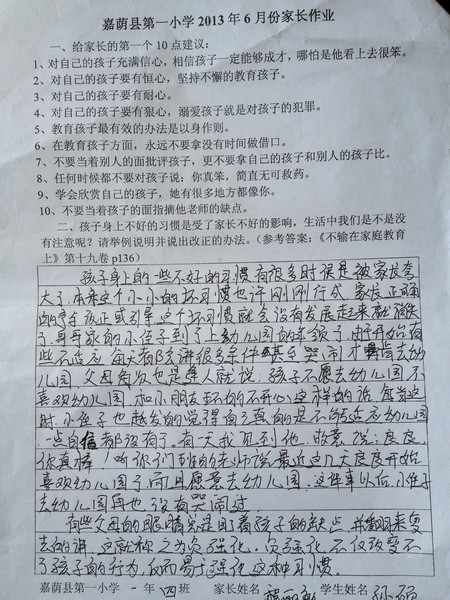 嘉荫县第一小学 2013 年 6 月份家长作业
一、给家长的第一个 10 点建议：
1、对自己的孩子充满信心，相信孩子一定能够成才，哪怕是他看上去很笨。
2、对自己的孩子要有恒心，坚持不懈的教育孩子。
3、对自己的孩子要有耐心。
4、对自己的孩子要有狠心，溺爱孩子就是对孩子的犯罪。
5、教育孩子最有效的办法是以身作则。
6、在教育孩子方面，永远不要拿没有时间做借口。
7、不要当着别人的面批评孩子，更不要拿自己的孩子和别人的孩子比。
8、任何时候都不要对孩子说：你真笨，简直无可救药。
9、学会欣赏自己的孩子，她有很多地方都像你。
10、不要当着孩子的面指摘他老师的缺点。
二、孩子身上不好的习惯是受了家长不好的影响，生活中我们是不是没
有注意呢？请举例说明并说出改正的办法。（参考答案：《不输在家庭教育
上》第十九卷 p136）
孩子身上的一些不好的习惯有很多时候是被家长夸
大了，本来这个小小的坏习惯也许刚刚行成 家长正确
的 改正或引导 这个坏习惯就会没有发展起来就消失
了，哥哥家的小侄子到了上幼儿园的年领了，由于开始有
些不适应 每天都讲很多条件 甚至哭闹才肯去幼
儿园，父母每次也是逢人就说：孩子不愿去幼儿园 不
喜欢幼儿园 和小朋友玩的不开心 这样的话 每当这
时 小侄子也越发的觉得自己真的是不能适应幼儿园
一点自信都没有了，有一天我见到他，故意说：良良，
你真棒！听你们班的老师说 最近这几天良良开始
喜欢幼儿园了而且愿意去幼儿园，这件事以后，小侄子
去幼儿园再也没有哭闹过，
有些父母的眼睛总是盯着孩子的缺点，并翻来复
去的讲，这就称之为负强化，负强化 不仅改变不
了孩子的行为，反而易于强化这种习惯。
嘉荫县第一小学 一 年 四 班 家长姓名 学生姓名